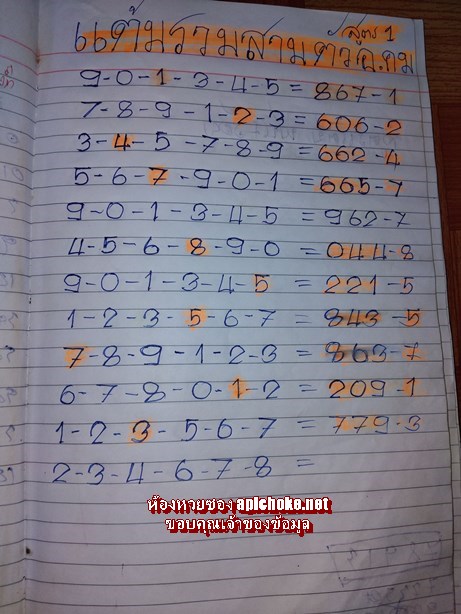 สูตร 1
แต้มรวมสามตัวฉ.คม
9-0-1-3-4-5=867-1
7-8-9-1-2-3=606-2
3-4-5-7-8-9=662-4
5-6-7-9-0-1=665-7
9-0-1-3-4-5=962-7
4-5-6-8-9-0=044-8
9-0-1-3-4-5=221-5
1-2-3-5-6-7=843-5
7-8-9-1-2-3=863-7
6-7-8-0-1-2=209-1
1-2-3-5-6-7=779-3
2-3-4-6-7-8=
ห้องหวยซอง apichoke.net
ขอบคุณเจ้าของข้อมูล